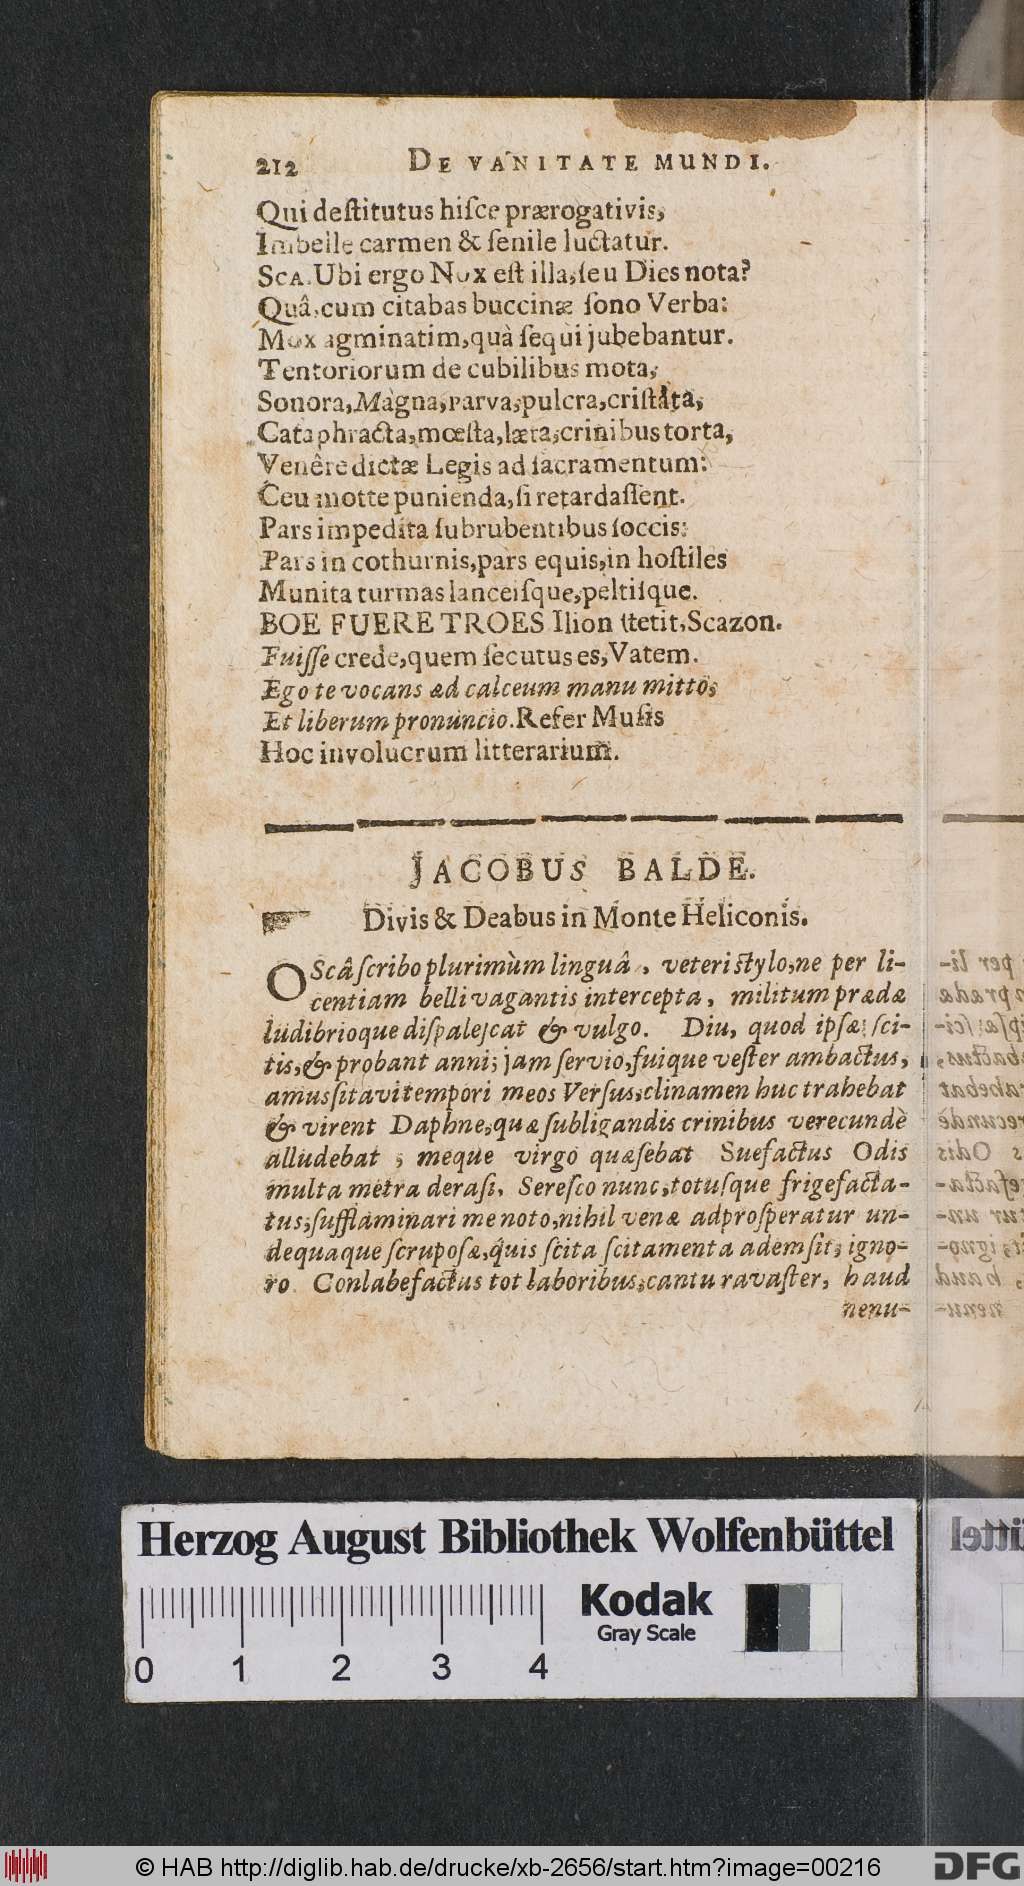 212 DE VANITATE MUNDI.
Qui deſtitutus hiſce prærogativis,
Imbelle carmen & ſenile luctatur.
SCA. Ubi ergo Nox eſt illa, ſeu Dies nota?
Quâ, cum citabas buccinæ ſono Verba:
Mox agminatim, quà ſequi jubebantur.
Tentoriorum de cubilibus mota,
Sonora, Magna, parva, pulcra, criſtata,
Cataphracta, mœſta, læta, crinibus torta,
Venêre dictæ Legis ad ſacramentum:
Ceu morte punienda, ſi retardaſſent.
Pars impedita ſubrubentibus ſoccis:
Pars in cothurnis, pars equis, in hoſtiles
Munita turmas lanceiſque, peltiſque.
BOE FUERE TROES Ilion ſtetit, Scazon.
Fuiſſe crede, quem ſecutus es, Vatem.
Ego te vocans ad calceum manu mitto,
Et liberum pronuncio. Refer Muſis
Hoc involucrum litterarium.
JACOBUS BALDE.
Divis & Deabus in Monte Heliconis.
OScâ ſcribo plurimùm linguâ, veteri ſtylo, ne per li-
centiam belli vagantis intercepta, militum prædæ
ludibrioque diſpaleſcat & vulgo. Diu, quod ipſæ ſci-
tis, & probant anni; jam ſervio, fuique veſter ambactus,
amusſitavi tempori meos Verſus, clinamen huc trahebat
& virent Daphne, quæ ſubligandis crinibus verecundè
alludebat, meque virgo quæſebat Suefactus Odis
multa metra deraſi, Sereſco nunc, totuſque frigefacta-
tus, ſufflaminari me noto, nihil venæ adproſperatur un-
dequaque ſcrupoſæ, quis ſcita ſcitamenta ademſit, igno-
ro. Conlabefactus tot laboribus, cantu ravaſter, haud
nenu-
Herzog August Bibliothek Wolfenbüttel
Kodak
Gray Scale
0 1 2 3 4
© HAB http://diglib.hab.de/drucke/xb-2656/start.htm?image=00216
DFG